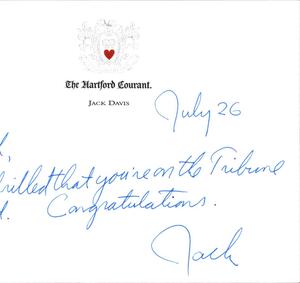 The Hartford Courant.
JACK DAVIS
July 26
,
rilled that you're on the Tribune
d. Congratulations.
Jack